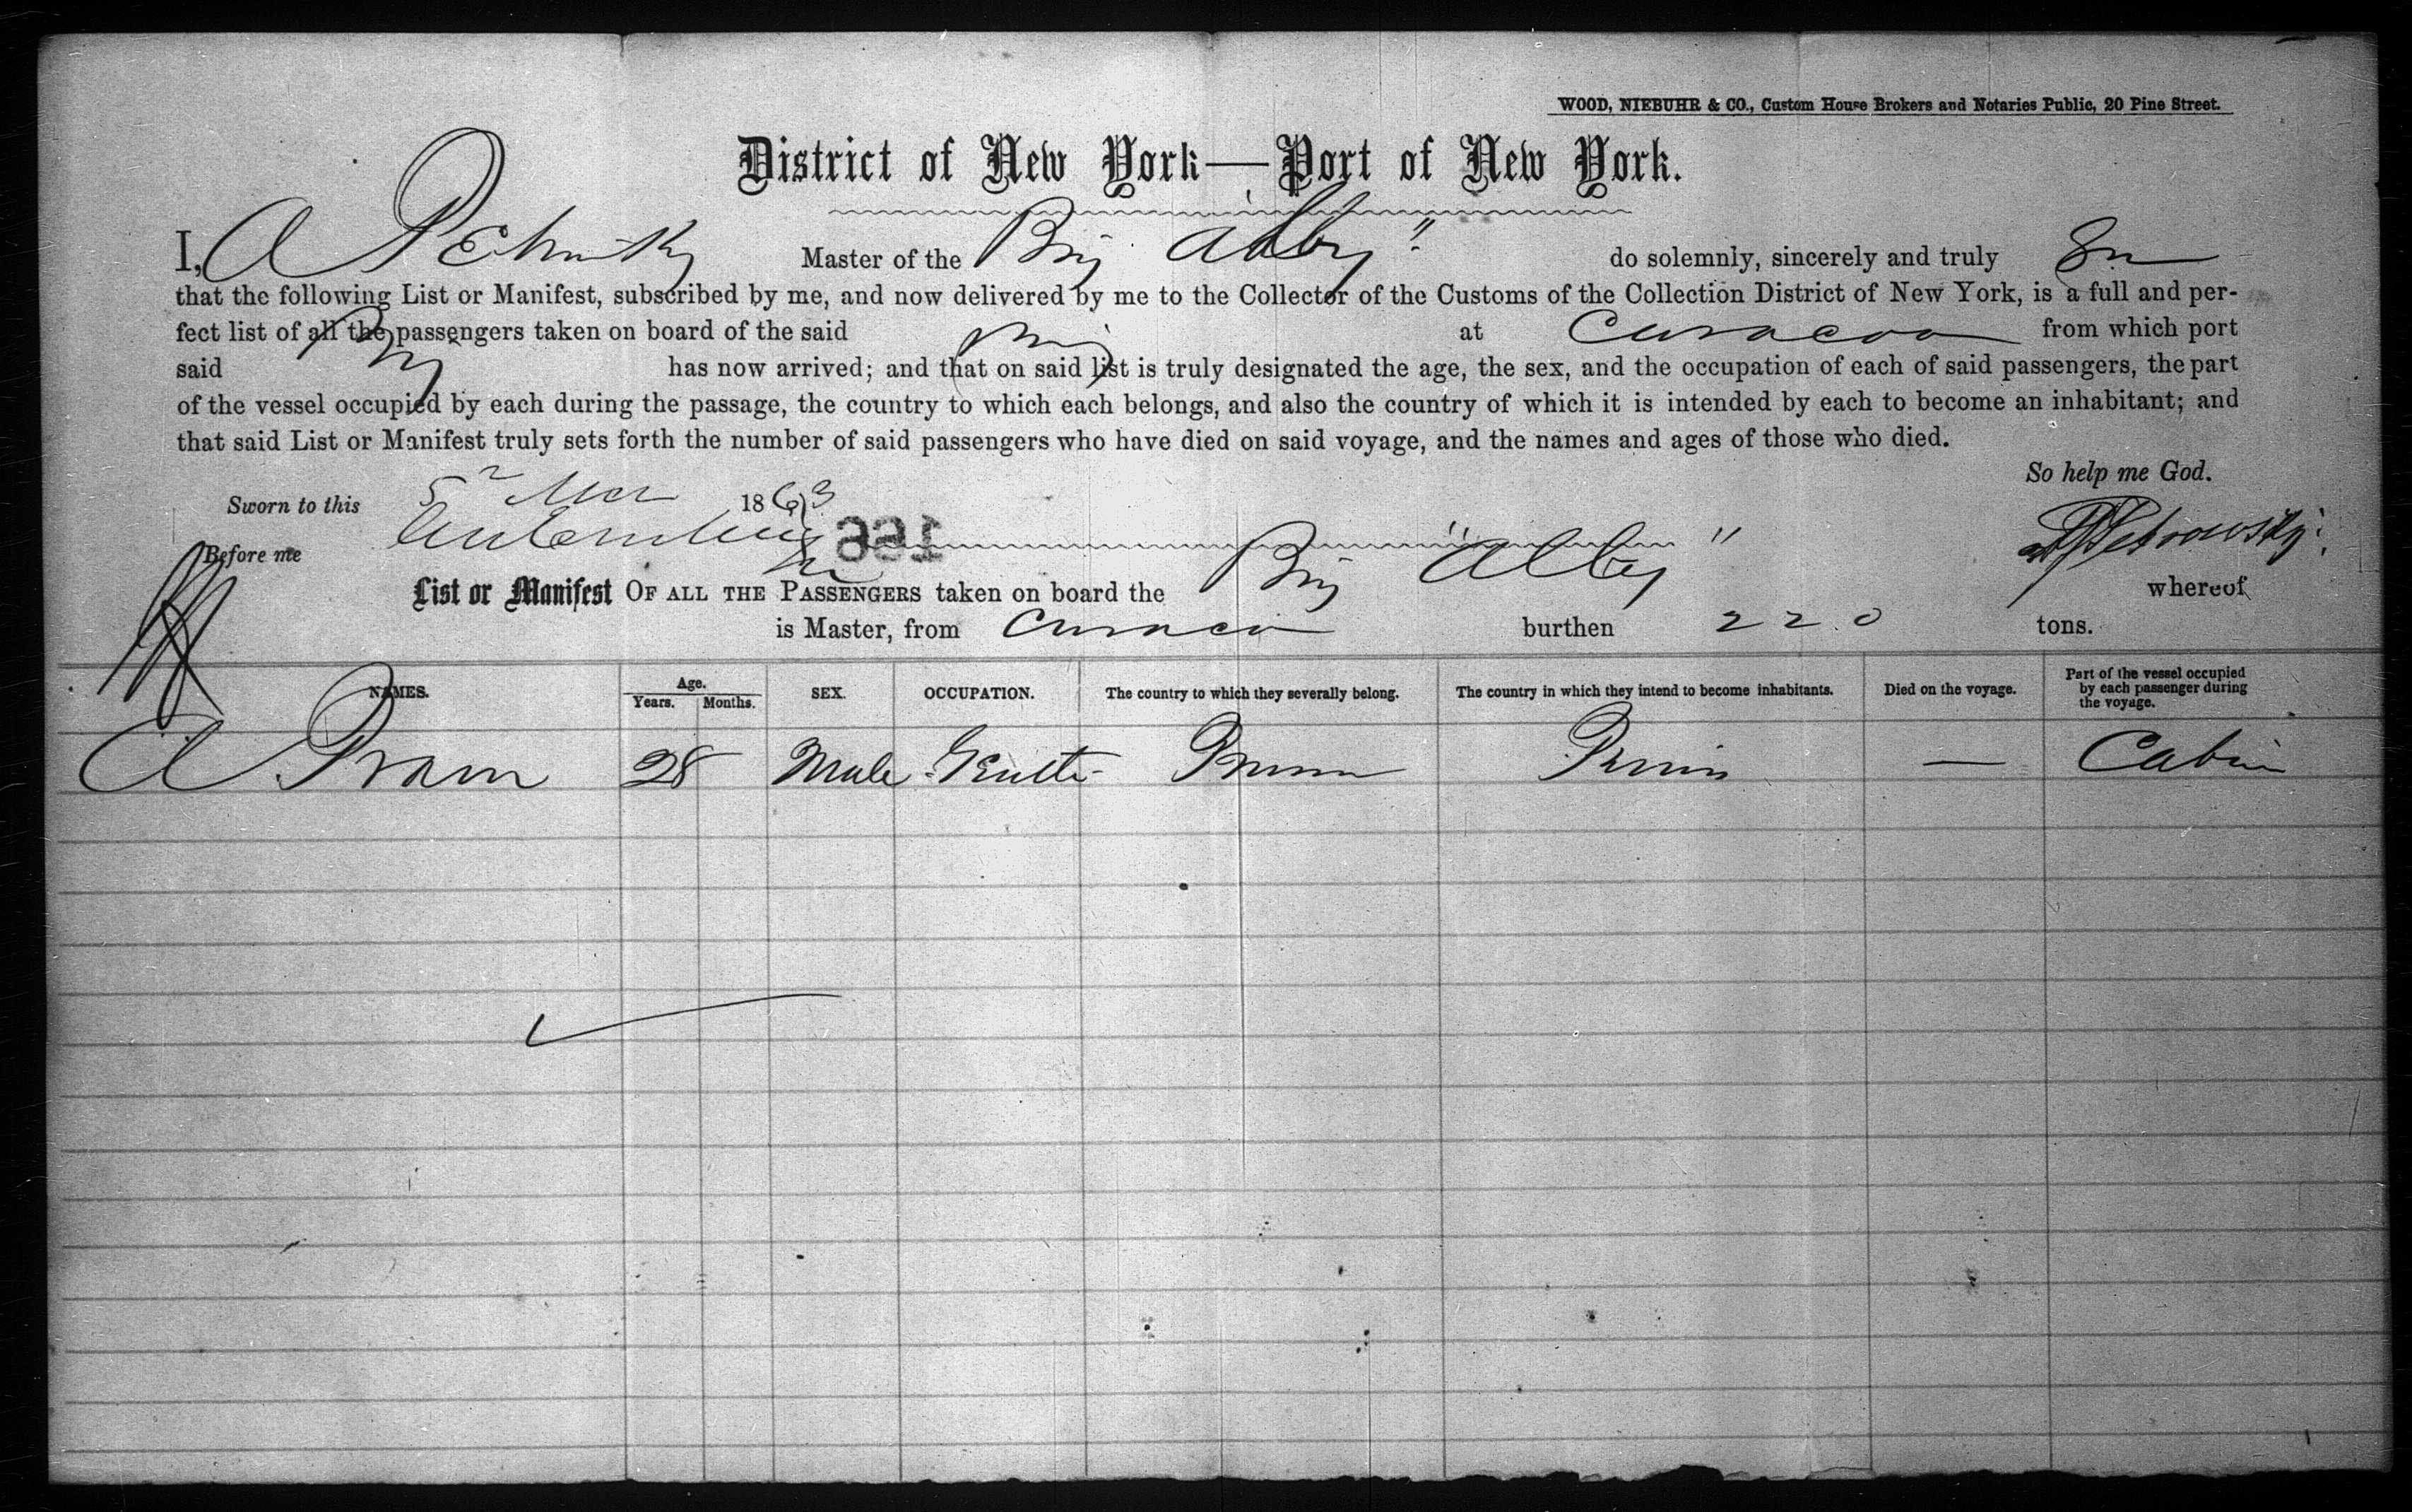 WOOD, NIEBUHR & CO., Custom House Brokers and Notaries Public, 20 Pine Street.
District of New York—Port of New York.
I, A Master of the Brig "Abby" do solemnly, sincerely and truly
that the following List or Manifest, subscribed by me, and now delivered by me to the Collector of the Customs of the Collection District of New York, is a full and per-
fect list of all the passengers taken on board of the said Brig at Curacoa from which port
said Brig has now arrived; and that on said list is truly designated the age, the sex, and the occupation of each of said passengers, the part
of the vessel occupied by each during the passage, the country to which each belongs, and also the country of which it is intended by each to become an inhabitant; and
that said List or Manifest truly sets forth the number of said passengers who have died on said voyage, and the names and ages of those who died.
So help me God.
Sworn to this 5 Mar 1863
Before me 156 Petrowsky
List or Manifest OF ALL THE PASSENGERS taken on board the Brig "Abby" whereof
is Master, from Curacoa burthen 220 tons.
NAMES. Age. Years. Months. SEX. OCCUPATION. The country to which they severally belong. The country in which they intend to become inhabitants. Died on the voyage. Part of the vessel occupied by each passenger during the voyage.
A Pram 28 Male — Cabin